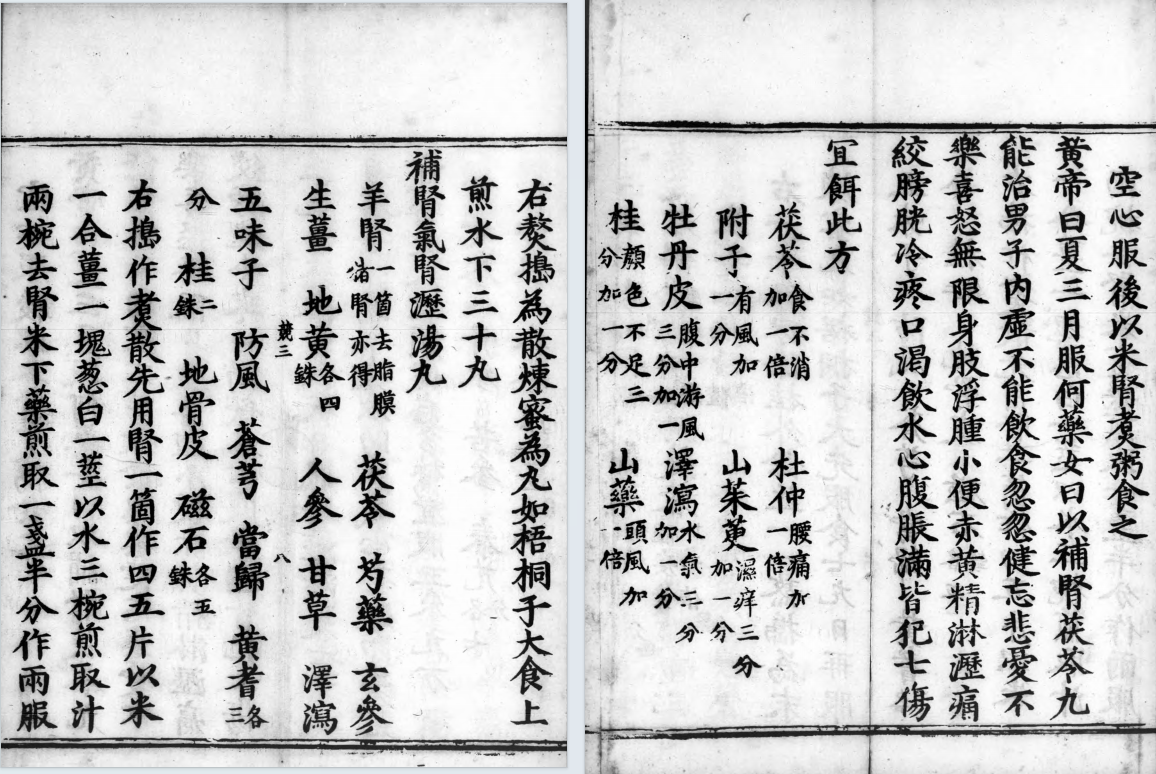 空心服後以米腎煑粥食之
黃帝曰夏三月服何藥女曰以補腎茯苓丸
能治男子內虛不能飲食忽忽健忘悲憂不
樂喜怒無限身肢浮腫小便赤黃精淋瀝痛
絞膀胱冷疼口渴飲水心腹脹滿皆犯七傷
宜餌此方
茯苓食不消加一倍 杜仲腰痛加一倍
附子有風加一分 山茱萸濕痒三分加一分
牡丹皮腹中游風三分加一 澤瀉水氣三分加一分
桂顏色不足三分加一分 山藥頭風加一倍
右熬搗為散煉蜜為丸如梧桐子大食上
煎水下三十丸
補腎氣腎瀝湯丸
羊腎一箇去脂膜猪腎亦得 茯苓 芍藥 玄參
生薑 地黃各四銖 人參 甘草 澤瀉
競三 八
五味子 防風 蒼芎 當歸 黃耆各三
分 桂二銖 地骨皮 磁石各五銖
右搗作煑散先用腎一箇作四五片以米
一合薑一塊葱白一莖以水三椀煎取汁
兩椀去腎米下藥煎取一盞半分作兩服